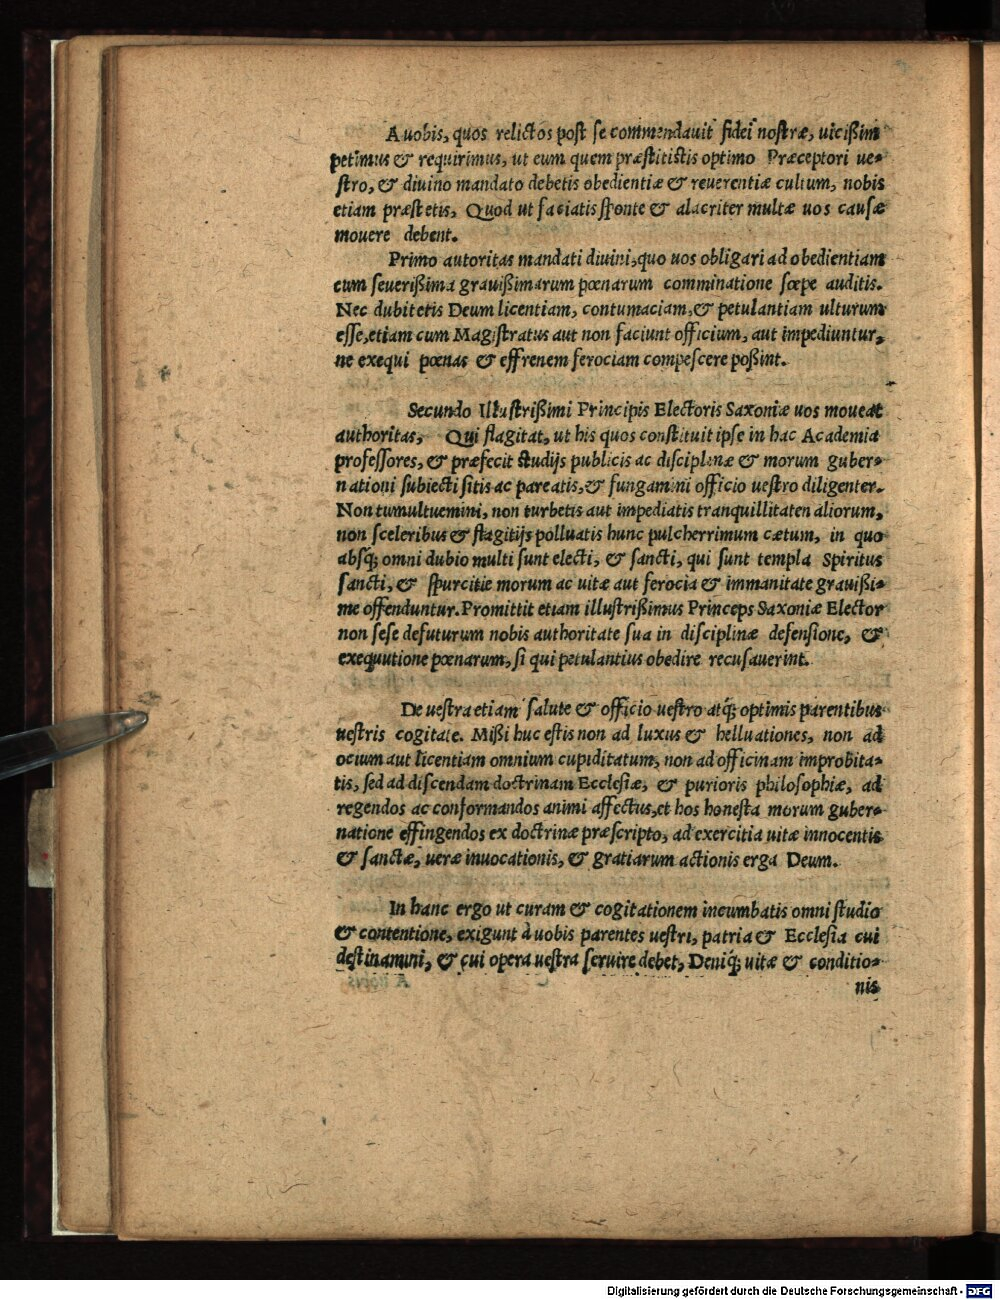 A uobis, quos relictos post se commendauit fidei nostræ, uicißim
petimus & requirimus, ut eum quem præstitistis optimo Præceptori ue-
stro, & diuino mandato debetis obedientiæ & reuerentiæ cultum, nobis
etiam præstetis, Quod ut faciatis sponte & alacriter multæ uos causæ
mouere debent.
Primo autoritas mandati diuini, quo uos obligari ad obedientiam
cum seuerißima grauißimarum pœnarum comminatione sæpe auditis.
Nec dubitetis Deum licentiam, contumaciam, & petulantiam ulturum
esse, etiam cum Magistratus aut non faciunt officium, aut impediuntur,
ne exequi pœnas & effrenem ferociam compescere poßint.
Secundo Illustrißimi Principis Electoris Saxoniæ uos moueat
authoritas, Qui flagitat, ut his quos constituit ipse in hac Academia
professores, & præfecit studijs publicis ac disciplinæ & morum guber-
nationi subiecti sitis ac pareatis, & fungamini officio uestro diligenter.
Non tumultuemini, non turbetis aut impediatis tranquillitaten aliorum,
non sceleribus & flagitijs polluatis hunc pulcherrimum cætum, in quo
absq; omni dubio multi sunt electi, & sancti, qui sunt templa Spiritus
sancti, & spurcitie morum ac uitæ aut ferocia & immanitate grauißi-
me offenduntur. Promittit etiam illustrißimus Princeps Saxoniæ Elector
non sese defuturum nobis authoritate sua in disciplinæ defensione, &
exequutione pœnarum, si qui petulantius obedire recusauerint.
De uestra etiam salute & officio uestro atq; optimis parentibus
uestris cogitate. Mißi huc estis non ad luxus & helluationes, non ad
ocium aut licentiam omnium cupiditatum, non ad officinam improbita-
tis, sed ad discendam doctrinam Ecclesiæ, & purioris philosophiæ, ad
regendos ac conformandos animi affectus, et hos honesta morum guber-
natione effingendos ex doctrinæ præscripto, ad exercitia uitæ innocentis
& sanctæ, ueræ inuocationis, & gratiarum actionis erga Deum.
In hanc ergo ut curam & cogitationem incumbatis omni studio
& contentione, exigunt à uobis parentes uestri, patria & Ecclesia cui
destinamini, & cui opera uestra seruire debet, Deniq; uitæ & conditio-
nis
Digitalisierung gefördert durch die Deutsche Forschungsgemeinschaft - DFG